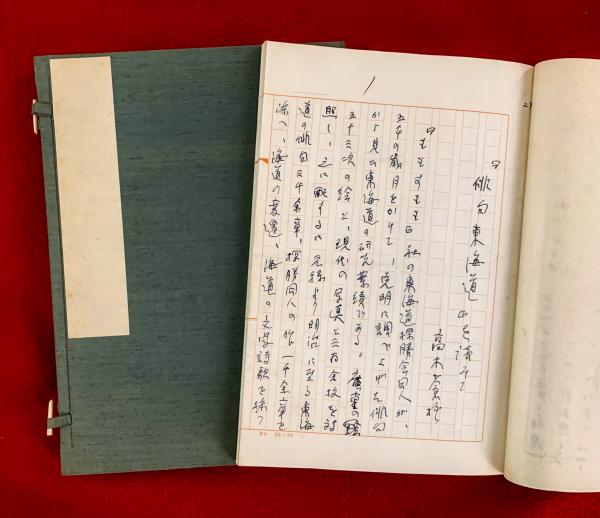 1
『俳句東海道』を読みて
高木蒼梧
『もゝすもゝ』社の東海道探勝会同人が、
五年の歳月をかけて、克明に調べ上げた俳句
から見た東海道の研究業績である。廣重の
五十三次の絵と、現代の写真と三百余枚を対
照し、之に配するに元禄より明治に至る東海
道の俳句三千余章、探勝同人の作一千余章を
添へ、海道の変遷、海道の文学詩歌を採つ
B4 20×20